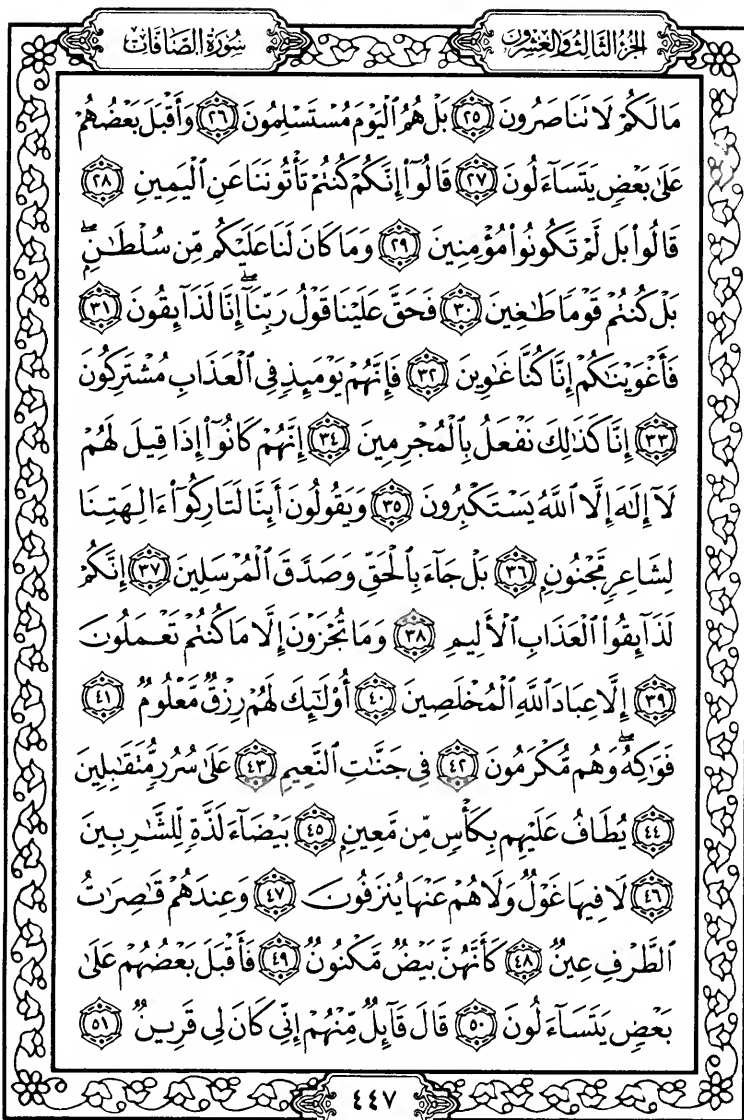 سُورَةُ الصَّافَّاتِ
الجُزْءُ الثَّالِثُ وَالْعِشْرُونَ
مَا لَكُمْ لَا تَنَاصَرُونَ ٢٥ بَلْ هُمُ ٱلْيَوْمَ مُسْتَسْلِمُونَ ٢٦ وَأَقْبَلَ بَعْضُهُمْ
عَلَىٰ بَعْضٍ يَتَسَآءَلُونَ ٢٧ قَالُوٓا۟ إِنَّكُمْ كُنتُمْ تَأْتُونَنَا عَنِ ٱلْيَمِينِ ٢٨
قَالُوا۟ بَل لَّمْ تَكُونُوا۟ مُؤْمِنِينَ ٢٩ وَمَا كَانَ لَنَا عَلَيْكُم مِّن سُلْطَـٰنٍۭ ۖ
بَلْ كُنتُمْ قَوْمًا طَـٰغِينَ ٣٠ فَحَقَّ عَلَيْنَا قَوْلُ رَبِّنَآ ۖ إِنَّا لَذَآئِقُونَ ٣١
فَأَغْوَيْنَـٰكُمْ إِنَّا كُنَّا غَـٰوِينَ ٣٢ فَإِنَّهُمْ يَوْمَئِذٍ فِى ٱلْعَذَابِ مُشْتَرِكُونَ
٣٣ إِنَّا كَذَٰلِكَ نَفْعَلُ بِٱلْمُجْرِمِينَ ٣٤ إِنَّهُمْ كَانُوٓا۟ إِذَا قِيلَ لَهُمْ
لَآ إِلَـٰهَ إِلَّا ٱللَّهُ يَسْتَكْبِرُونَ ٣٥ وَيَقُولُونَ أَئِنَّا لَتَارِكُوٓا۟ ءَالِهَتِنَا
لِشَاعِرٍ مَّجْنُونٍۭ ٣٦ بَلْ جَآءَ بِٱلْحَقِّ وَصَدَّقَ ٱلْمُرْسَلِينَ ٣٧ إِنَّكُمْ
لَذَآئِقُوا۟ ٱلْعَذَابِ ٱلْأَلِيمِ ٣٨ وَمَا تُجْزَوْنَ إِلَّا مَا كُنتُمْ تَعْمَلُونَ
٣٩ إِلَّا عِبَادَ ٱللَّهِ ٱلْمُخْلَصِينَ ٤٠ أُو۟لَـٰٓئِكَ لَهُمْ رِزْقٌ مَّعْلُومٌ ٤١
فَوَٰكِهُ ۖ وَهُم مُّكْرَمُونَ ٤٢ فِى جَنَّـٰتِ ٱلنَّعِيمِ ٤٣ عَلَىٰ سُرُرٍ مُّتَقَـٰبِلِينَ
٤٤ يُطَافُ عَلَيْهِم بِكَأْسٍ مِّن مَّعِينٍۭ ٤٥ بَيْضَآءَ لَذَّةٍ لِّلشَّـٰرِبِينَ
٤٦ لَا فِيهَا غَوْلٌ وَلَا هُمْ عَنْهَا يُنزَفُونَ ٤٧ وَعِندَهُمْ قَـٰصِرَٰتُ
ٱلطَّرْفِ عِينٌ ٤٨ كَأَنَّهُنَّ بَيْضٌ مَّكْنُونٌ ٤٩ فَأَقْبَلَ بَعْضُهُمْ عَلَىٰ
بَعْضٍ يَتَسَآءَلُونَ ٥٠ قَالَ قَآئِلٌ مِّنْهُمْ إِنِّى كَانَ لِى قَرِينٌ ٥١
٤٤٧